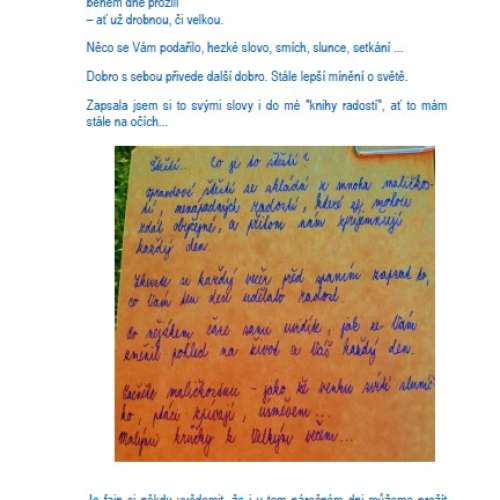 během dne prožili
– ať už drobnou, či velkou.
Něco se Vám podařilo, hezké slovo, smích, slunce, setkání ...
Dobro s sebou přivede další dobro. Stále lepší mínění o světě.
Zapsala jsem si to svými slovy i do mé "knihy radostí", ať to mám
stále na očích...
Štěstí... Co je to štěstí?
Opravdové štěstí se skládá z mnoha maličkos-
tí, nenápadných radostí, které se mohou
zdát obyčejné, a přitom nám zpříjemňují
každý den.
Zkuste si každý večer před spaním zapsat to,
co Vám ten den udělalo radost.
Co nějakém čase sami uvidíte, jak se Vám
změnil pohled na život a Váš každý den.
Začněte maličkostmi - jako že venku svítí sluníč-
ko, ptáci zpívají, úsměvem...
Malými krůčky k velkým věcem...
Je fajn si někdy uvědomit, že i v tom náročném dni můžeme prožít